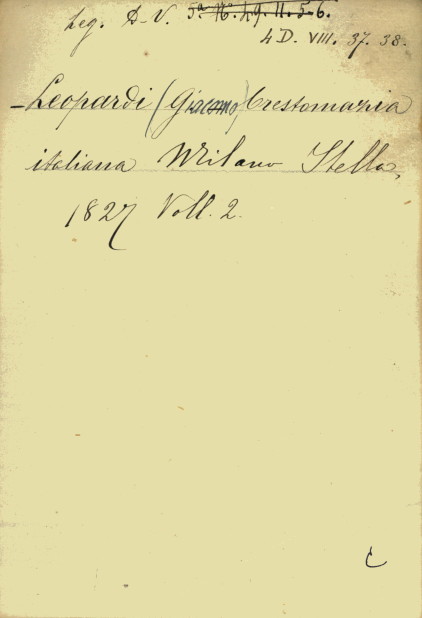 Leg. A-V. 5ª N. 49. 11. 5-6.
4 D. VIII. 37. 38.
-Leopardi (Giacomo) Crestomazia
italiana Milano Stella,
1827 Voll. 2.
C